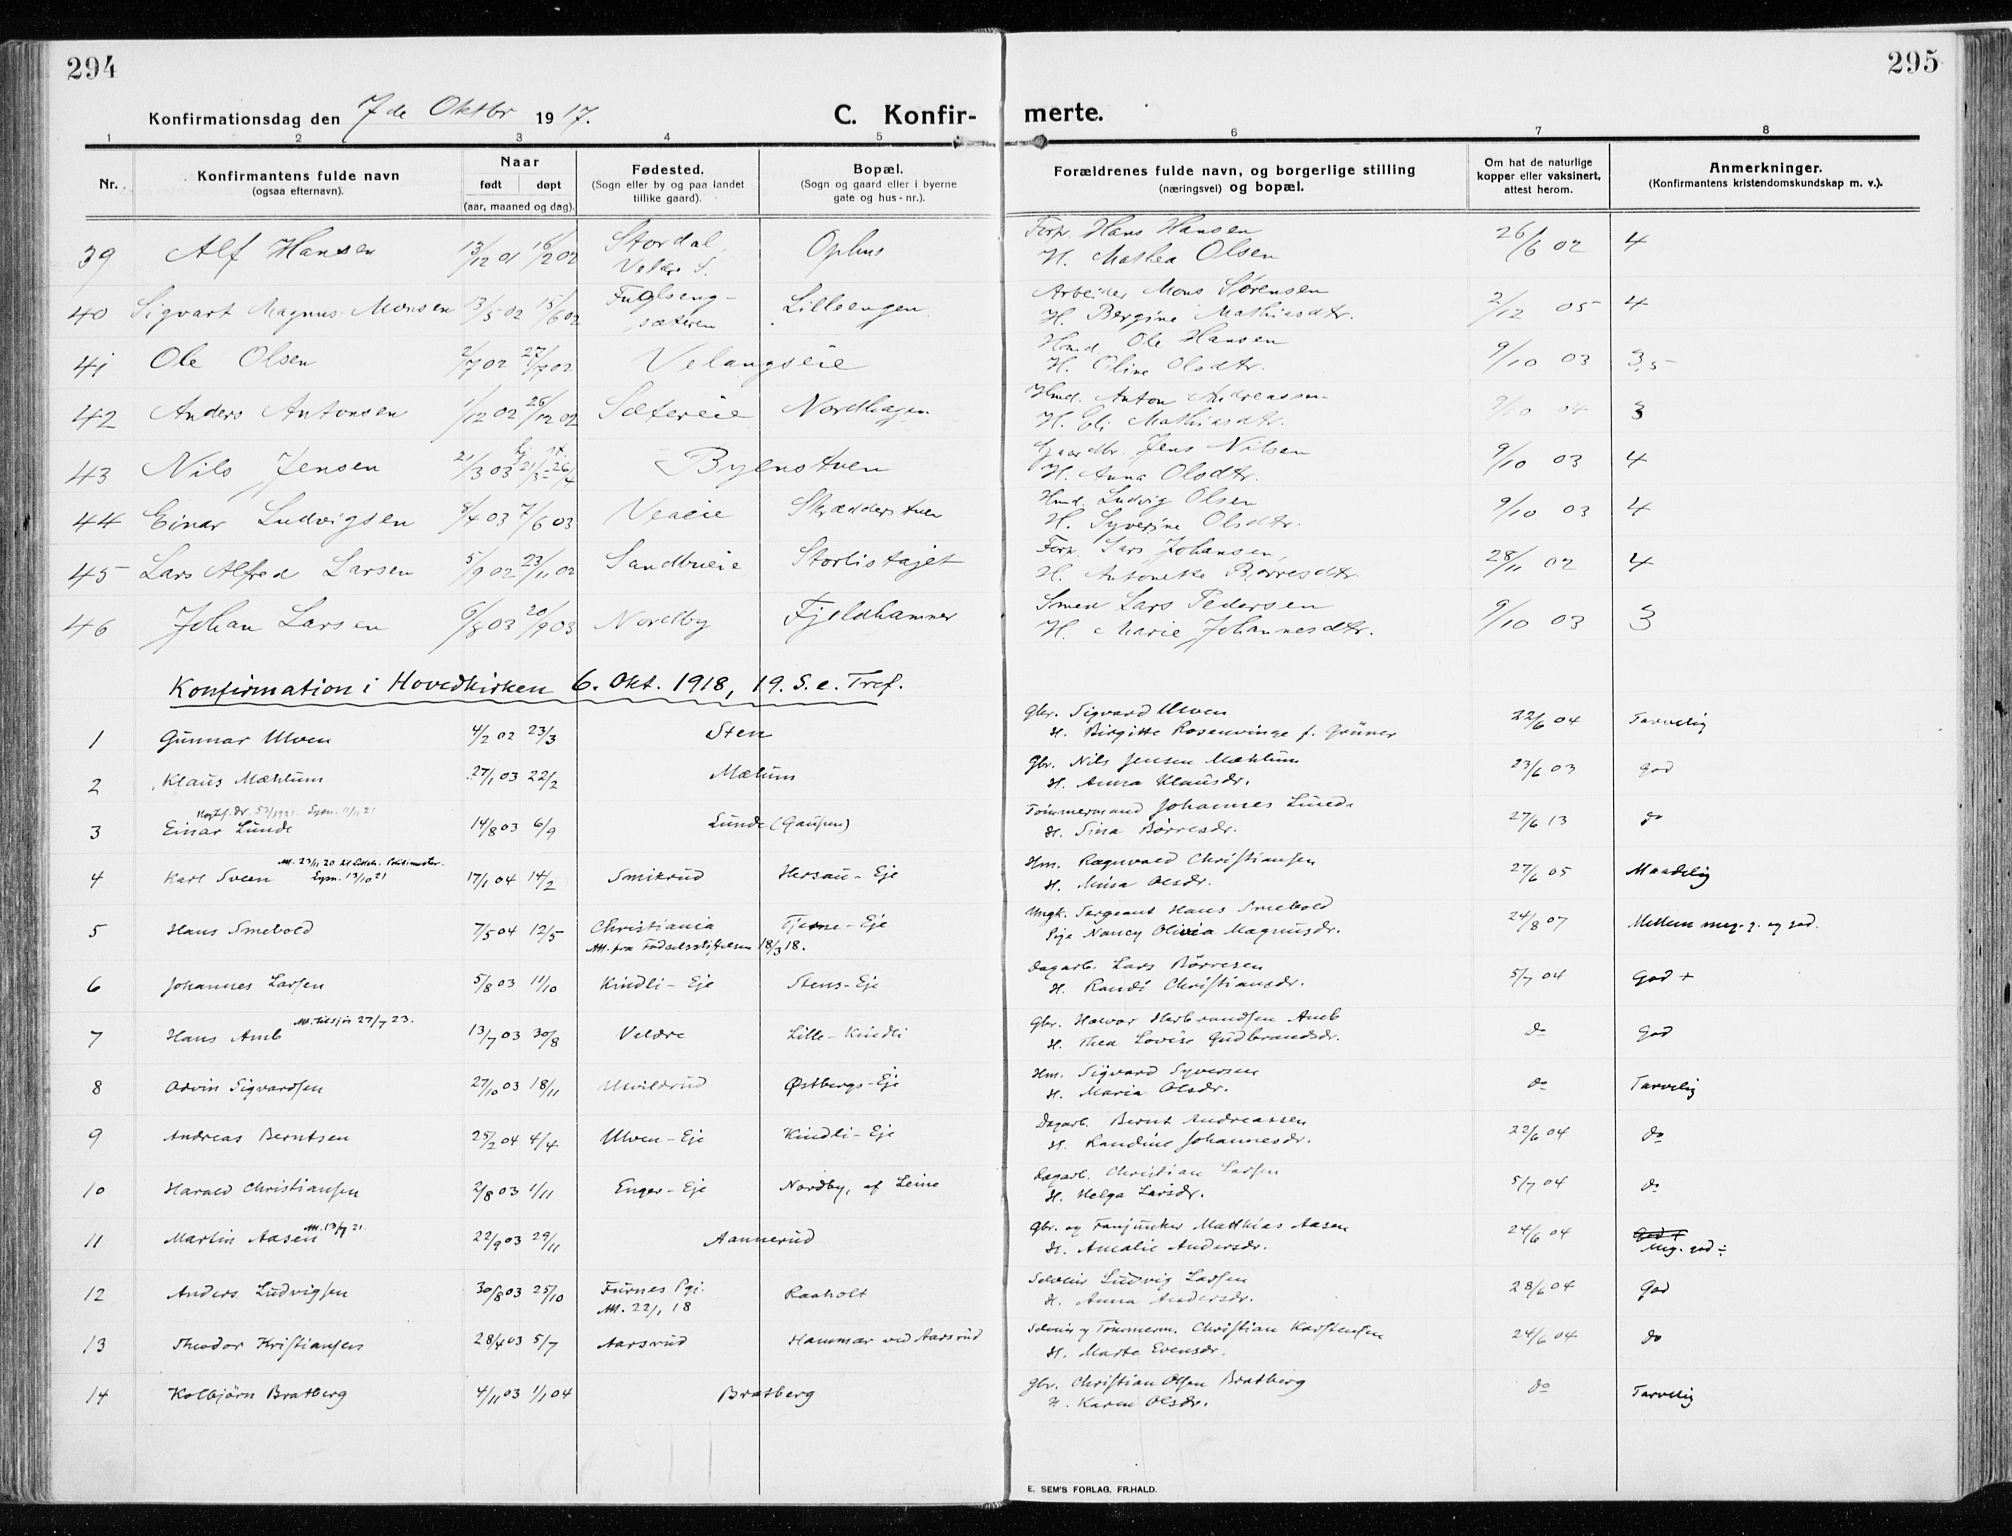 294
295
Konfirmationsdag den 7de Oktbr 1917.
C. Konfirmerte.
1 2 3 4 5 6 7 8
Nr.
Konfirmantens fulde navn
(ogsaa efternavn).
Naar
født døpt
(aar, maaned og dag).
Fødested.
(Sogn eller by og paa landet
tillike gaard).
Bopæl.
(Sogn og gaard eller i byerne
gate og hus-nr.).
Forældrenes fulde navn, og borgerlige stilling
(næringsvei) og bopæl.
Om hat de naturlige
kopper eller vaksinert,
attest herom.
Anmerkninger.
(Konfirmantens kristendomskundskap m. v.).
39 Alf Hansen 13/12 01 16/2 02 Stordal, Ophus Forp. Hans Hansen 26/6 02 4
H. Mathea Olsen
40 Sigvart Magnus Monsen 13/5 02 15/6 02 Fuglseng- Lilleengen Arbeider Mons Sørensen 2/12 05 4
sæteren H. Bergine Mathiasdtr.
41 Ole Olsen 2/7 02 27/7 02 Velangseie Hmd. Ole Hansen 9/10 03 3,5
H. Oline Olsdtr.
42 Anders Antonsen 1/12 02 26/12 02 Sætereie Nordhagen Hmd. Anton Andreassen 9/10 04 3
H. Eli Mathiasdtr.
43 Nils Jensen 21/3 03 21/3 - 26/4 Byenstuen Gaardbr. Jens Nilsen 9/10 03 4
H. Anna Olsdtr.
44 Einar Ludvigsen 8/4 03 7/6 03 Veaeie Skrædderstuen Hmd. Ludvig Olsen 9/10 03 4
H. Syverine Olsdtr.
45 Lars Alfred Larsen 5/9 02 23/11 02 Sandbueie Storlistajet Forp. Lars Johansen, 28/11 02 4
H. Antonette Børresdtr.
46 Johan Larsen 6/8 03 20/9 03 Nordby Fjeldhammer Smed Lars Pedersen 9/10 03 3
H. Marie Johannesdtr.
Konfirmation i Hovedkirken 6. Okt. 1918, 19. S. e. Tref.
1 Gunnar Ulven 4/2 02 23/3 Sten Gbr. Sigvard Ulven 22/6 04 Tarvelig
H. Birgitte Rosenvinge f. Grüner
2 Klaus Mæhlum 27/1 03 22/2 Mælum Gbr. Nils Jensen Mæhlum 23/6 03 God
H. Anna Klausdr.
3 Einar Lunde 14/8 03 6/9 Lunde (Gausen) Tømmermand Johannes Lunde 27/6 13 do
H. Sina Børresdr.
Att. 23/11 20
4 Karl Sveen 13/10 21 17/1 04 14/2 Smikrud Hersau-Eje Hm. Ragnvald Christiansen 27/6 05 Maadelig
H. Mina Olsdr.
5 Hans Smebold 7/5 04 12/5 Christiania Tjerne-Eje Ungk. Sergeant Hans Smebold 24/8 07 Mellem meg. g. og god.
Att. fra Fødselsstiftelsen 18/3 18. Pige Nancy Olivia Magnusdr.
6 Johannes Larsen 5/8 03 11/10 Kindli-Eje Stens-Eje Dagarb. Lars Børresen 5/7 04 God +
H. Randi Christiansdr.
7 Hans Amb Att. 27/7 23. 13/7 03 30/8 Veldre Lille-Kindli Gbr. Halvor Herbrandsen Amb do God
H. Thea Lovise Gudbrandsdr.
8 Arvin Sigvardsen 27/10 03 18/11 Ulvildrud Østbergs-Eje Hm. Sigvard Syversen do Tarvelig
H. Maria Olsdr.
9 Andreas Berntsen 25/2 04 4/4 Ulven-Eje Kindli-Eje Dagarb. Bernt Andreassen 22/6 04 do
H. Randine Johannesdr.
10 Harald Christiansen 2/8 03 1/11 Enger-Eje Nordby, af Leine Dagarb. Christian Larsen 5/7 04 do
H. Helga Larsdr.
11 Martin Aasen Att. 13/7 21. 22/9 03 29/11 Aannerud Gbr. og Fanjunker Matthias Aasen 24/6 04 God +
H. Amalie Andersdr. Meg. god ÷
12 Anders Ludvigsen 30/8 03 25/10 Furnes Pgj. Raaholt Selveier Ludvig Larsen 28/6 04 God
Att. 22/1 18 H. Anna Andersdr.
13 Theodor Kristiansen 28/4 03 5/7 Aarsrud Hammar ved Aarsrud Selveier og Tømmerm. Christian Karstensen 24/6 04 do
H. Marte Evensdr.
14 Kolbjørn Bratberg 4/11 03 1/1 04 Bratberg Gbr. Christian Olsen Bratberg do Tarvelig
H. Karen Olsdr.
E. SEM'S FORLAG, FR.HALD.